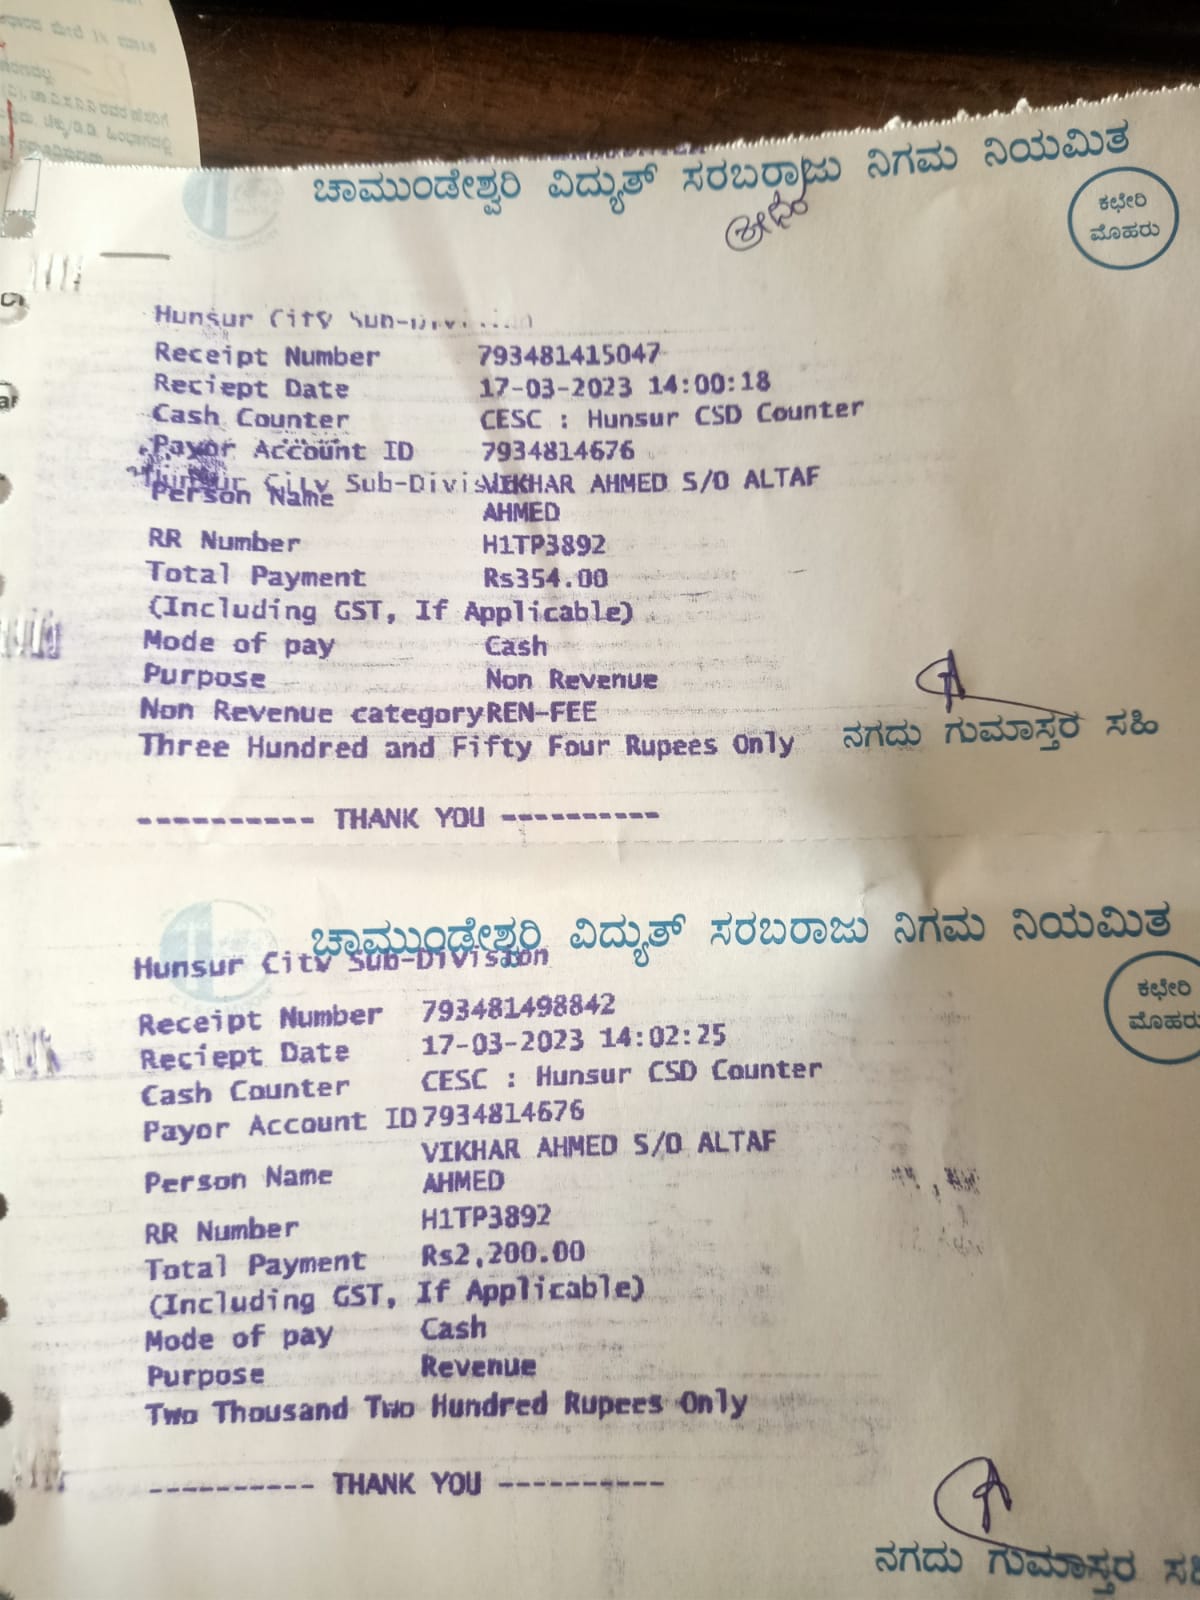 ಚಾಮುಂಡೇಶ್ವರಿ ವಿದ್ಯುತ್ ಸರಬರಾಜು ನಿಗಮ ನಿಯಮಿತ
ಕಛೇರಿ
ಮೊಹರು
Hunsur City Sub-Division
Receipt Number 793481415047
Reciept Date 17-03-2023 14:00:18
Cash Counter CESC : Hunsur CSD Counter
Payor Account ID 7934814676
Hunsur City Sub-Division
Person Name VIKHAR AHMED S/O ALTAF
AHMED
RR Number H1TP3892
Total Payment Rs354.00
(Including GST, If Applicable)
Mode of pay Cash
Purpose Non Revenue
Non Revenue categoryREN-FEE
Three Hundred and Fifty Four Rupees Only
ನಗದು ಗುಮಾಸ್ತರ ಸಹಿ
---------- THANK YOU ----------
ಚಾಮುಂಡೇಶ್ವರಿ ವಿದ್ಯುತ್ ಸರಬರಾಜು ನಿಗಮ ನಿಯಮಿತ
ಕಛೇರಿ
ಮೊಹರು
Hunsur City Sub-Division
Receipt Number 793481498842
Reciept Date 17-03-2023 14:02:25
Cash Counter CESC : Hunsur CSD Counter
Payor Account ID 7934814676
Person Name VIKHAR AHMED S/O ALTAF
AHMED
RR Number H1TP3892
Total Payment Rs2,200.00
(Including GST, If Applicable)
Mode of pay Cash
Purpose Revenue
Two Thousand Two Hundred Rupees Only
---------- THANK YOU ----------
ನಗದು ಗುಮಾಸ್ತರ